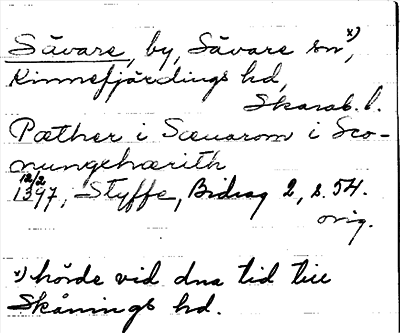 Sävare, by, Sävare sn x),
Kinnefjärdings hd,
Skarab. l.
Pæther i Sæuarom i Sco-
nungshærith
12/2
1397, Styffe, Bidrag 2, s. 54.
orig.
x) hörde vid dna tid till
Skånings hd.